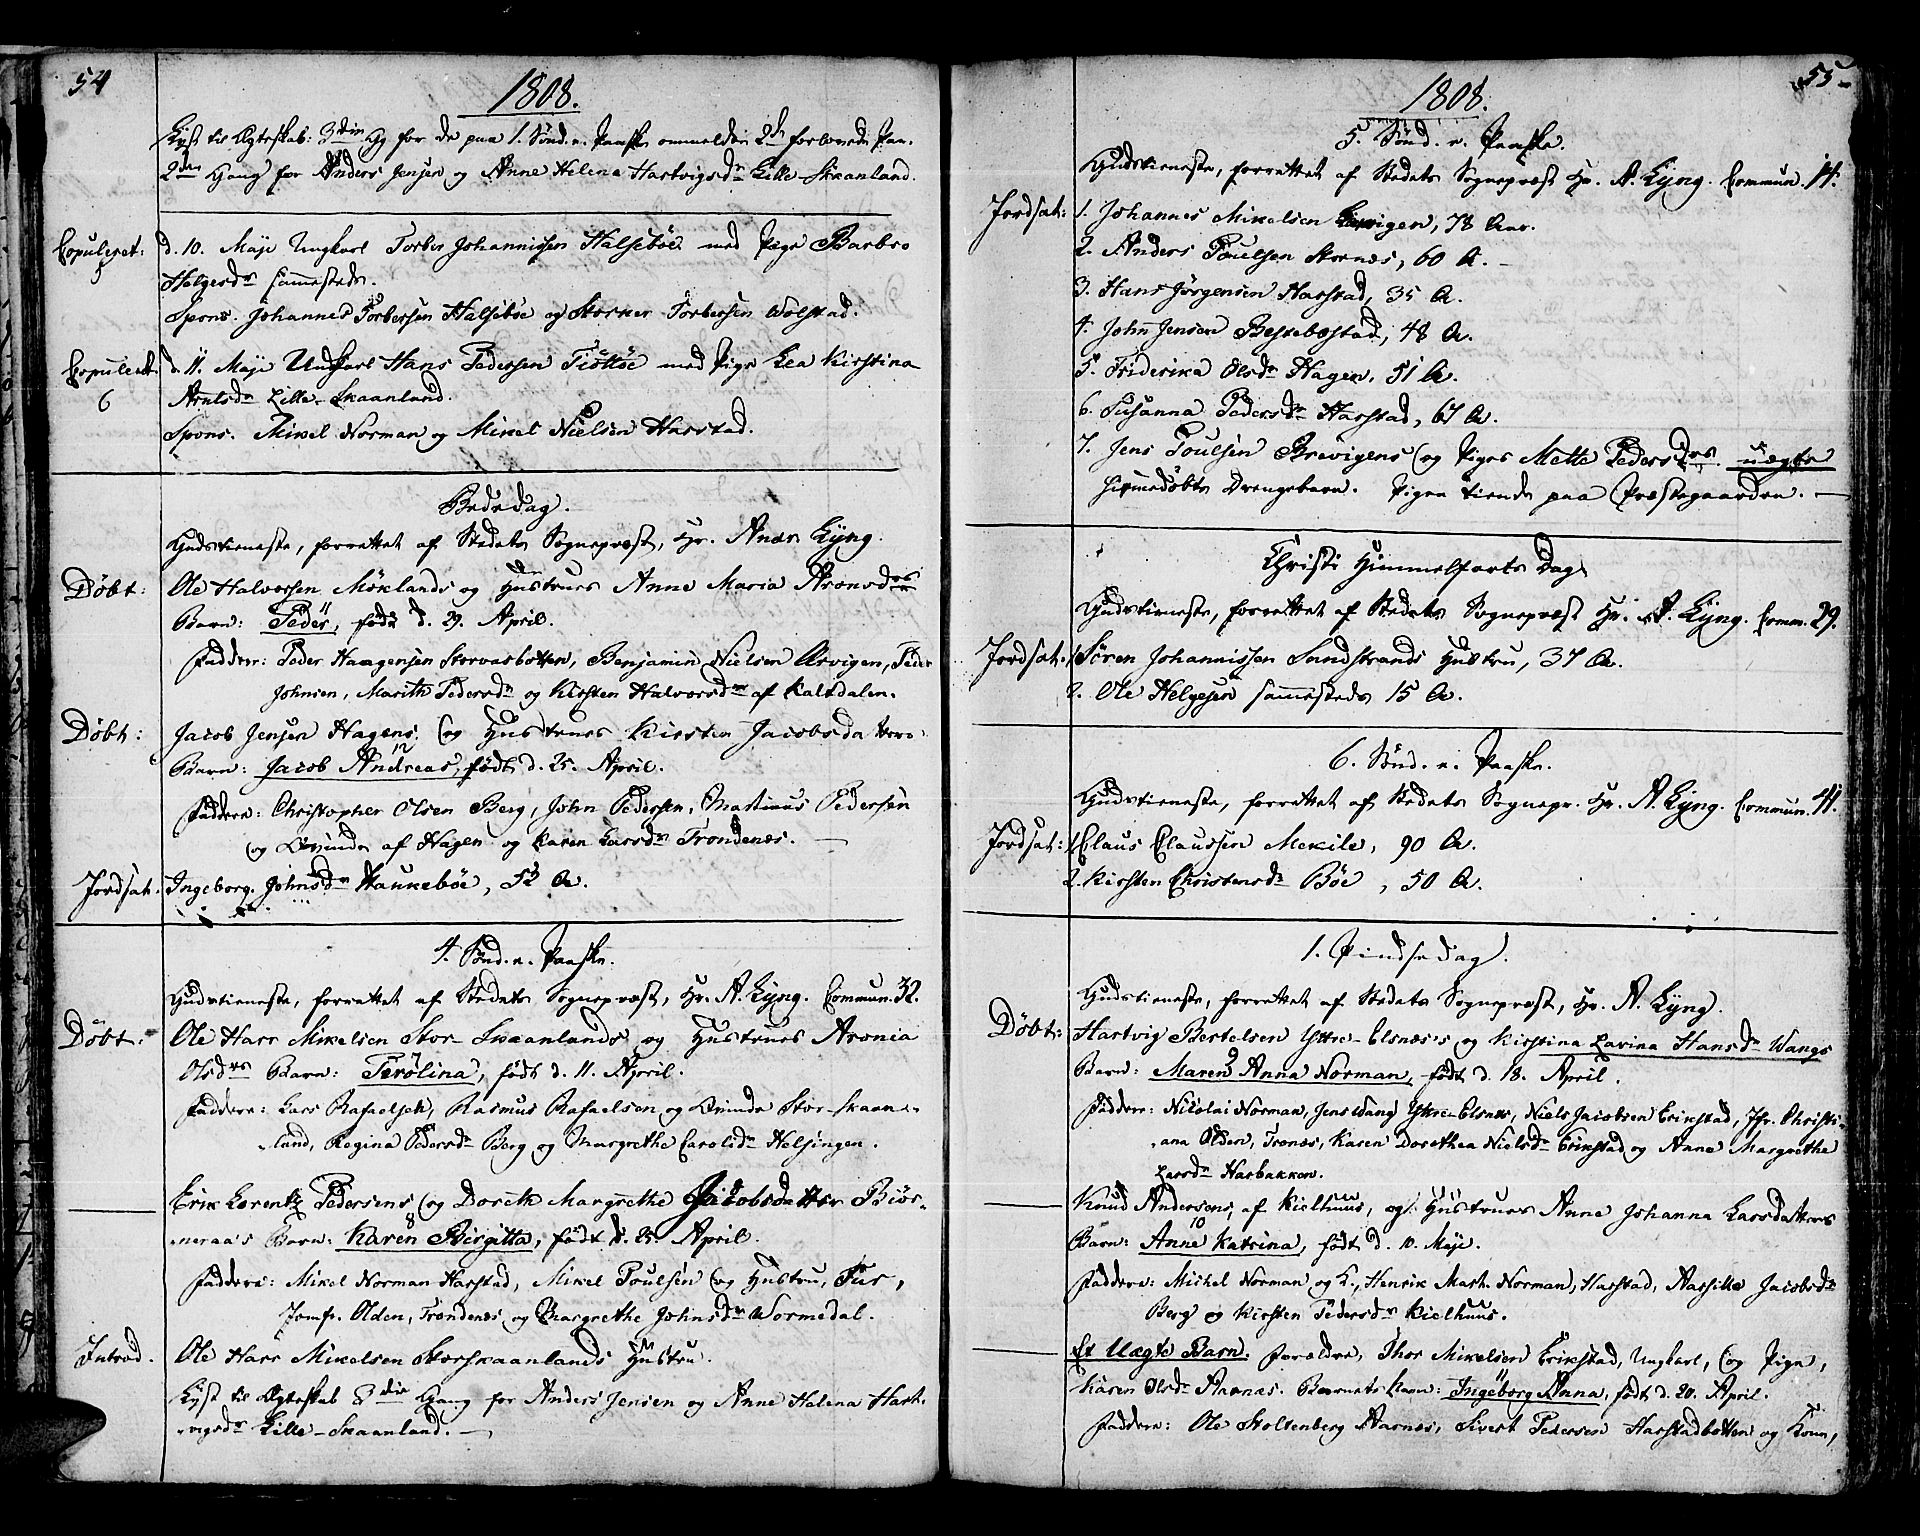 54
1808.
Lyst til Ægteskab: 3die Gg for de paa 1. Sönd. n. Paaske anmeldte 2de forlovede Par.
2den Gang for Anders Jensen og Anne Helena Hartvigsdr Lille-Skaanland.
Copuleret: 5
d. 10. Maji Ungkarl Torber Johannissen Halsebøe med Pige Barbro
Helgesdr sammesteds.
Spons. Johannes Torbersen Halsebøe og Storker Torbersen Wolstad.
Copuleret: 6
d. 11. Maji Ungkarl Hans Pedersen med Pige Lea Kirstina
Arntsdr Lille-Skaanland.
Spons. Mikel Norman og Mikel Nielsen Harstad.
Bededag.
Gudstieneste, forrettet af Stedets Sognepræst, Hr. Andr. Lyng.
Döbt: Ole Halvorsen Möklands og Hustrues Anne Maria Aronsdrs
Barn: Peder, födt d. 29. April.
Faddere: Peder Haagensen Storvasbotten, Benjamin Nielsen Ervigen, Peder
Johnsen, Marith Pedersdr og Kirsten Halvorsdr af Kaltdalen.
Döbt: Jacob Jensen Hagens og Hustrues Kirsten Jacobsdatters
Barn: Jacob Andreas, födt d. 25. April.
12
Faddere: Christopher Olsen Berg, John Pedersen, Martinus Pedersen
og Qvinde af Hagen og Karen Larsdr Trondenes.
Jordsat. Ingeborg Johnsdr Haukebøe, 52 A.
4. Sönd. n. Paaske.
Gudstieneste, forrettet af Stedets Sognepræst, Hr. A. Lyng. Commun. 32.
Döbt: Ole Harr Mikelsen Stor-Skaanlands og Hustrues Aronia
Olsdrs Barn: Perölina, födt d. 11. April.
Faddere: Lars Rafaelsen, Rasmus Rafaelsen og Qvinde Stor-Skaan-
land, Regina Pedersdr Berg og Margrethe Carolidr Helsingen.
Erik Lorentz Pedersens og Doreth Margrethe Jacobsdatter Biör-
neraa's Barn: Karen Birgitta, födt d. 25. April.
8
Faddere: Mikel Norman Harstad, Mikel Poulsen og Hustru, Fur,
Jomfr. Olden, Trondenes og Margrethe Johnsdr Wormedal.
Introd. Ole Harr Mikelsen Storskaanlands Hustru.
Lyst til Ægteskab 3die Gang for Anders Jensen og Anne Helena Hart-
vigsdr Lille-Skaanland.
55
1808.
5. Sönd. n. Paaske.
Gudstieneste, forrettet af Stedets Sognepræst Hr. A. Lyng. Commun. 14.
Jordsat: 1. Johannes Mikelsen Ervigen, 78 Aar.
2. Anders Poulsen Stornæs, 60 A.
3. Hans Jörgensen Harstad, 35 A.
4. John Jensen Bestebostad, 48 A.
5. Friderika Olsdr Hagen, 51 A.
6. Susanna Pedersdr Harstad, 67 A.
7. Jens Poulsen Brevigens og Piges Mette Pedersdrs uægte
hiemedöbte Drengebarn. Pigen tiende paa Præstegaarden.
Christi Himmelfarts Dag
Gudstieneste, forrettet af Stedets Sognepræst Hr. A. Lyng. Comm. 29.
Jordsat: 1. Sören Johannissen Sandstrands Hustru, 37 A.
2. Ole Helgesen sammesteds 15 A.
6. Sönd. n. Paaske.
Gudstieneste, forrettet af Stedets Sognepr. Hr. A. Lyng. Commun. 41.
Jordsat: 1. Claus Claussen Mekile, 90 A.
2. Kirsten Christensdr Böe, 50 A.
1. Pindsedag.
Gudstieneste, forrettet af Stedets Sognepræst, Hr. A. Lyng.
Döbt: Hartvig Bertelsen Yttre-Elsnæs's og Kirstina Lavina Hansdr Wangs
Barn: Maren Anna Norman, födt d. 18. April.
9
Faddere: Nikolai Norman, Jens Wang Yttre-Elsnes, Niels Jacobsen Erikstad, Jfr. Christi-
ana Olden, Tronæs, Karen Dorethea Nielsdr Erikstad og Anne Margrethe
Larsdr Harbakken.
Knud Andersens af Kielhuus, og Hustrues Anne Johanna Larsdatters
Barn: Anne Katrina, födt d. 10. Maji.
10
Faddere: Michel Norman og K., Henrik Math. Norman, Harstad, Aassille Jacobsdr
Berg og Kirsten Pedersdr Kielhuus.
Et Uægte Barn. Forældre, Thor Mikelsen Erikstad, Ungkarl, og Pige,
Karen Olsdr Aarnæs. Barnets Navn: Ingeborg Anna, födt d. 20. April.
11
Faddere: Ole Stoltenberg Aarnes, Sivert Pedersen Harstadbotten og Kone,